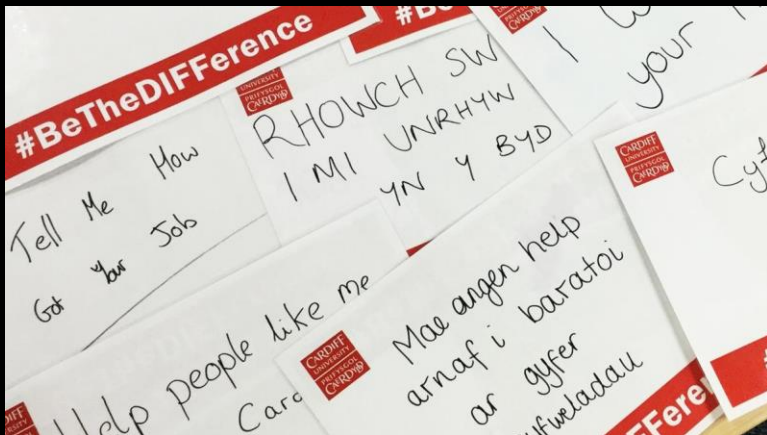 #BeTheDIFFerence
Tell Me How
Got Your Job
UNIVERSITY
PRIFYSGOL
CAERDYDD
RHOWCH SW
I MI UNRHYW
YN Y BYD
I
your
CARDIFF
UNIVERSITY
PRIFYSGOL
CAERDYDD
Help people like me
CARDIFF
UNIVERSITY
PRIFYSGOL
CAERDYDD
Mae angen help
arnaf i baratoi
ar gyfer
yfweladau